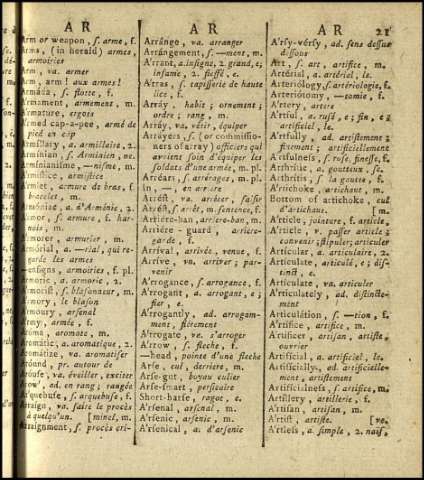 A R
Arm or weapon, s. arme, f.
Arms, (in herald) armes,
armoiries
Arm, va. armer
Arm, arm! aux armes!
Armáda, s. flotte, f.
Armament, armement, m.
Armature, ergots
Armed cap-a-pee, armé de
pied en cap
Armillary, a. armillaire, 2.
Armínian, s. Armínien, ne.
Arminianisme, —nisme, m.
Armistice, armistice
Armlet, armure de bras, f.
bracelet, m.
Arménie, f.
Armor, s. armure, f. har-
nois, m.
Armorer, armurier, m.
Armórial, a. —rial, qui re-
garde les armes
—ensigns, armoiries, f. pl.
Armory, le blason
Armoury, arsenal
Army, armée, f.
Aróma, aromate, m.
Aromátic, a. aromatique, 2.
Aromatize, va. aromatiser
Aróund, pr. autour de
Aróuse, va. éveiller, exciter
Arow', ad. en rang; rangée
Arquebuse, s. arquebuse, f.
Arráign, va. faire le procès
à quelqu'un. [minel, m.
Arraignment, s. procès cri-
A R
Arrânge, va. arranger
Arrángement, s. —ment, m.
A'rrant, a. insigne, 2. grand, e;
infame, 2. fieffé, e.
A'rras, s. tapisserie de haute
lice, f.
Arráy, habit; ornement;
ordre; rang, m.
Arráy, va. vêtir, équiper
Arráyers, s. (or commissio-
ners of array) officiers qui
avoient soin d'équiper les
soldats d'une armée, m. pl.
Arréars, s. arrérages, m. pl.
in, —, en arriere
Arrést, va. arrêter, saisir
Arrést, s. arrêt, m. sentence, f.
Arriére-ban, arriere-ban, m.
Arriére-guard, arriere-
garde, f.
Arríval, arrivée, venue, f.
Arríve, va. arriver; par-
venir
A'rrogance, s. arrogance, f.
A'rrogant, a. arrogant, e;
fier, e.
A'rrogantly, ad. arrogam-
ment, fiérement
A'rrogate, va. s'arroger
A'rrow, s. fleche, f.
—head, pointe d'une fleche
Arse, cul, derriere, m.
Arse-gut, boyau culier
Arse-smart, persicaire
Short-harse, ragot, e.
A'rsenal, arsenal, m.
A'rsenic, arsenic, m.
A'rsenical, a. d'arsenic
A R 21
A'rsy-vérsy, ad. sens dessus
dessous
Art, s. art, artifice, m.
Artérial, a. artériel, le.
Arteriólogy, s. artériologie, f.
Arteriótomy, —tomie, f.
A'rtery, artere
A'rtful, a. rusé, e; fin, e;
artificiel, le.
A'rtfully, ad. artistement;
finement; artificiellement
A'rtfulness, s. ruse, finesse, f.
Arthritic, a. goutteux, se.
Arthritis, s. la goutte, f.
A'rtichoke, artichaut, m.
Bottom of artichoke, cul
d'artichaut. [m.
A'rticle, jointure, f. article,
A'rticle, v. passer article;
convenir; stipuler; articuler
Artícular, a. articulaire, 2.
Artículate, articulé, e; dis-
tinct, e.
Artículate, va. articuler
A'rticulately, ad. distincte-
ment
Articulátion, s. —tion, f.
A'rtifice, artifice, m.
Artíficer, artisan, artiste,
ouvrier
Artifícial, a. artificiel, le.
Artifícially, ad. artificielle-
ment, artistement
Artifícialness, s. artifice, m.
Artíllery, artillerie, f.
A'rtisan, artisan, m.
A'rtist, artiste. [ve.
A'rtless, a. simple, 2. naif,